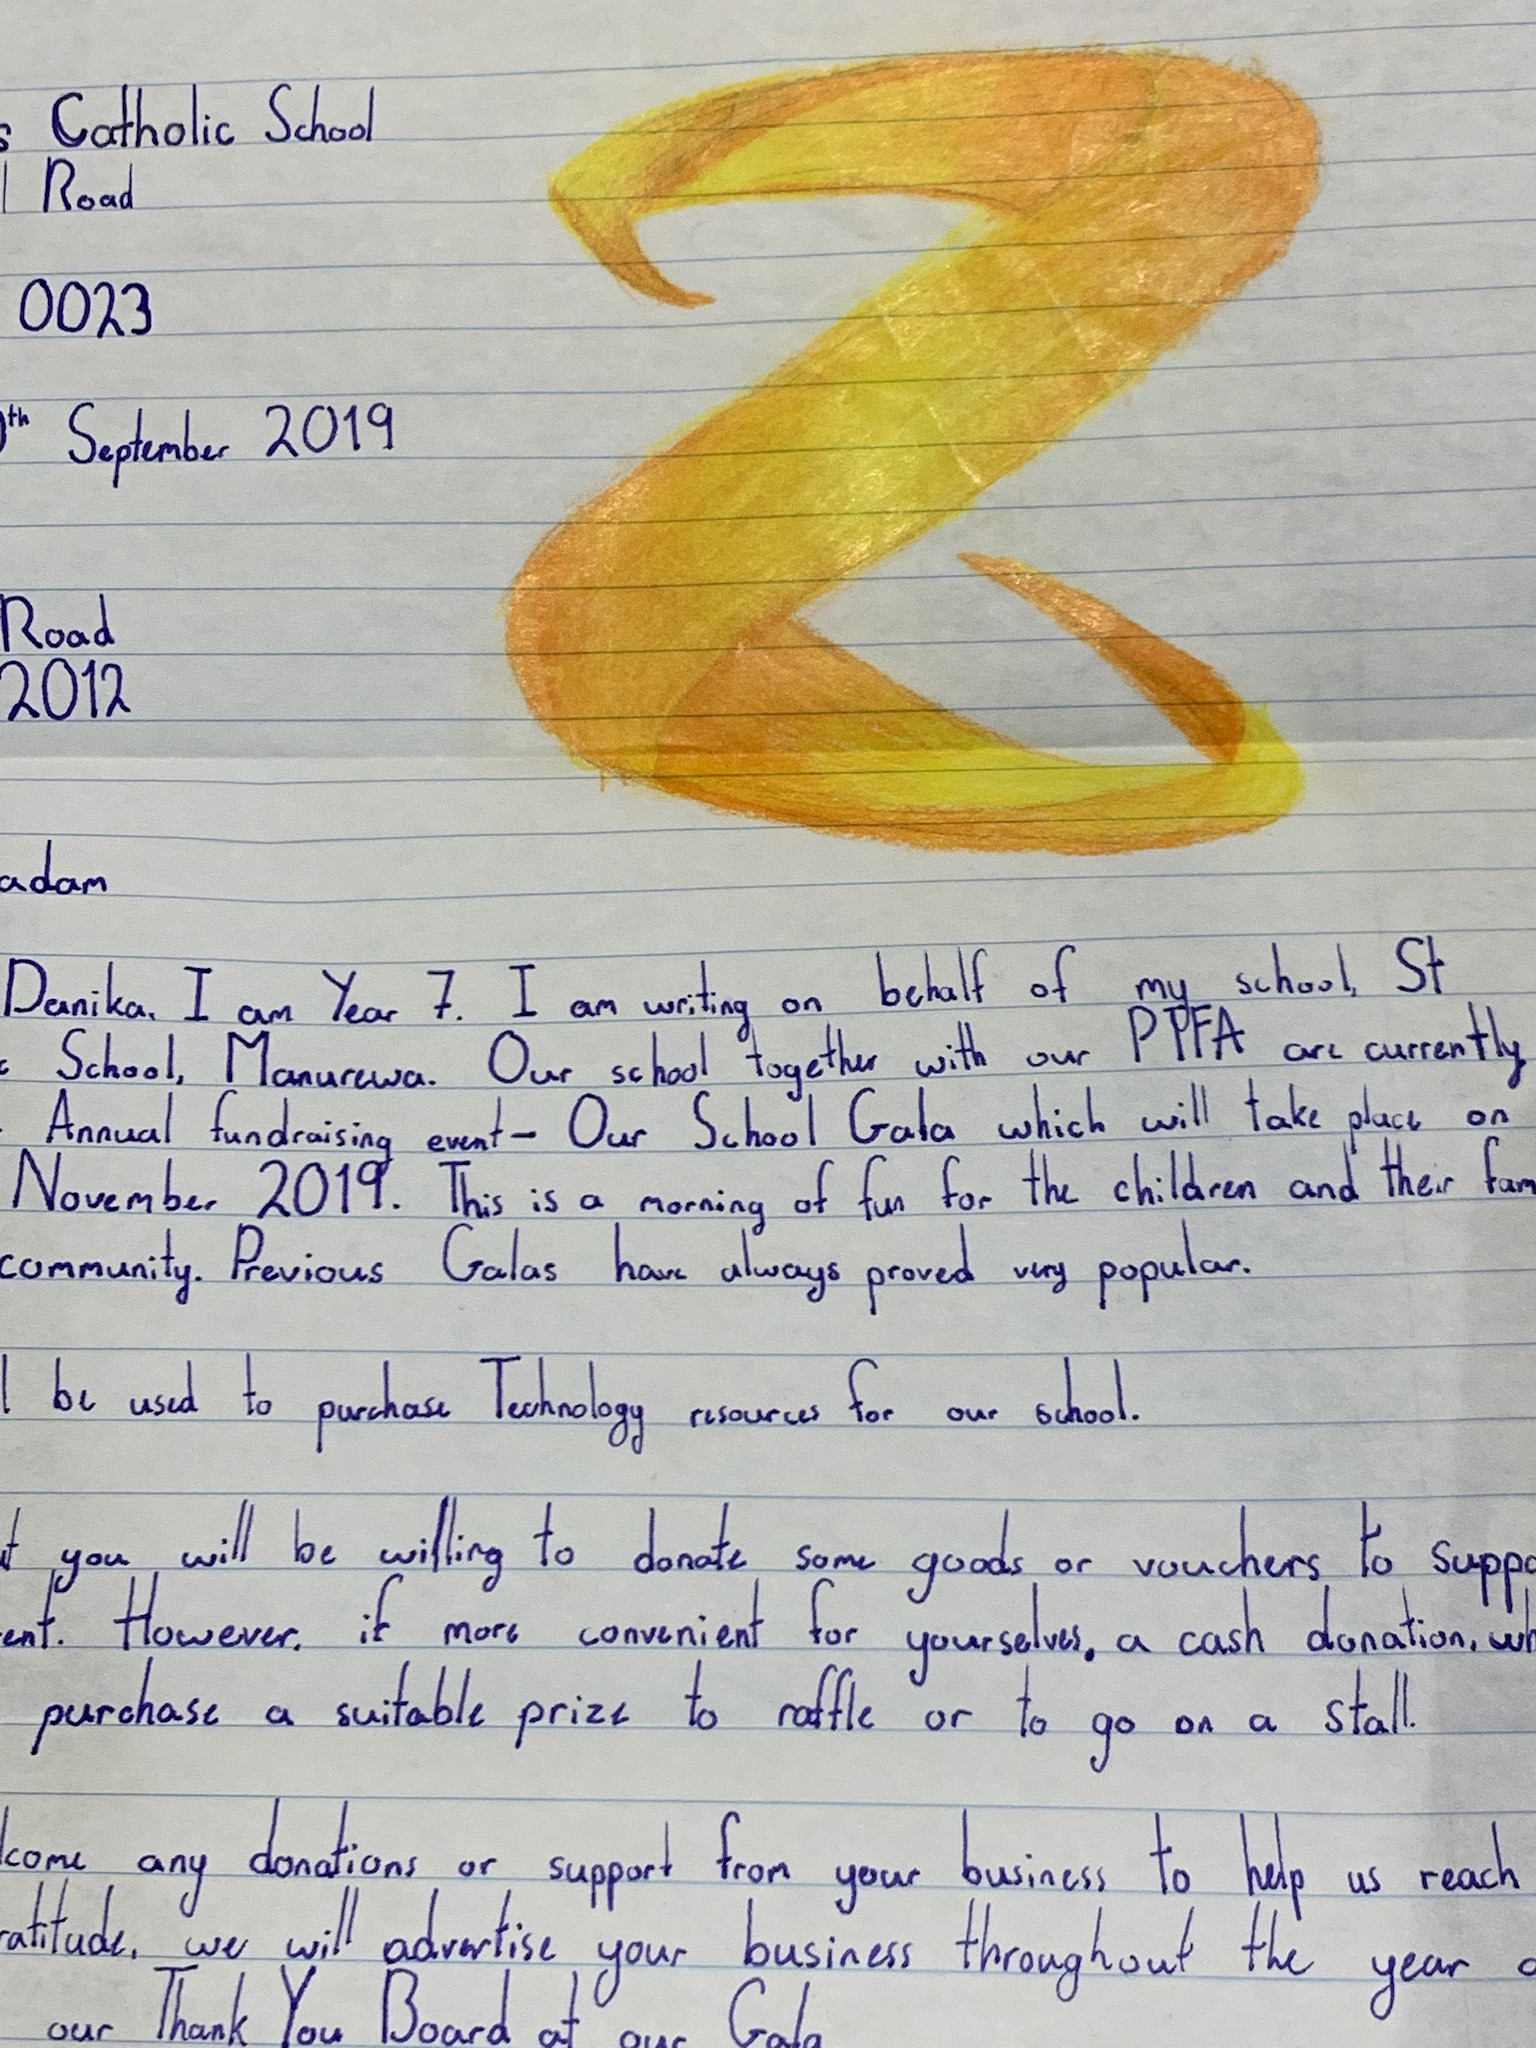 s Catholic School
l Road
0023
0th September 2019
Road
2012
adam
Danika. I am Year 7. I am writing on behalf of my school, St
c School, Manurewa. Our school together with our PTFA are currently
Annual fundraising event- Our School Gala which will take place on
November 2019. This is a morning of fun for the children and their fam
community. Previous Galas have always proved very popular.
l be used to purchase Technology resources for our school.
at you will be willing to donate some goods or vouchers to suppo
ent. However, if more convenient for yourselves, a cash donation, wh
purchase a suitable prize to raffle or to go on a stall.
lcome any donations or support from your business to help us reach
ratitude, we will advertise your business throughout the year o
our Thank You Board at our Gala